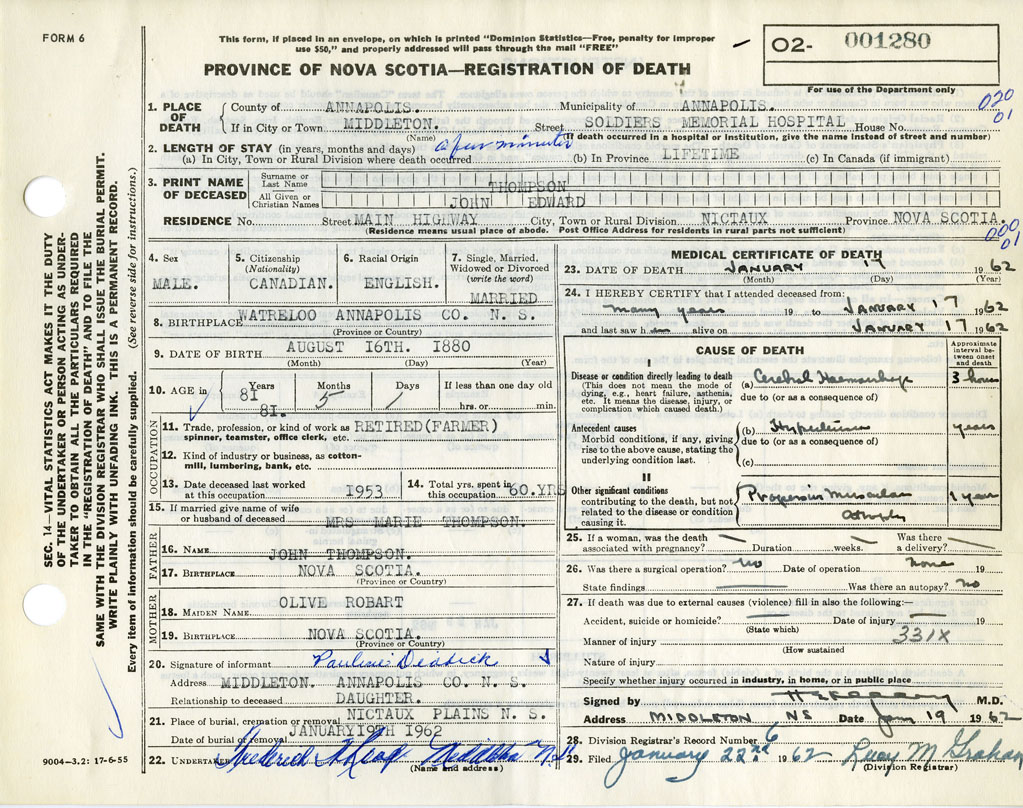 FORM 6
This form, if placed in an envelope, on which is printed "Dominion Statistics—Free, penalty for improper
use $50," and properly addressed will pass through the mail "FREE"
O2- 001280
For use of the Department only
PROVINCE OF NOVA SCOTIA—REGISTRATION OF DEATH
020
01
1. PLACE OF DEATH { County of ANNAPOLIS. Municipality of ANNAPOLIS.
If in City or Town MIDDLETON. Street SOLDIERS MEMORIAL HOSPITAL House No.
(Name) (If death occurred in a hospital or institution, give the name instead of street and number)
2. LENGTH OF STAY (in years, months and days)
(a) In City, Town or Rural Division where death occurred a few minutes (b) In Province LIFETIME (c) In Canada (if immigrant)
3. PRINT NAME OF DECEASED
Surname or Last Name THOMPSON
All Given or Christian Names JOHN EDWARD
RESIDENCE No. Street MAIN HIGHWAY City, Town or Rural Division NICTAUX Province NOVA SCOTIA.
(Residence means usual place of abode. Post Office Address for residents in rural parts not sufficient)
000
01
4. Sex MALE.
5. Citizenship (Nationality) CANADIAN.
6. Racial Origin ENGLISH.
7. Single, Married, Widowed or Divorced (write the word) MARRIED
8. BIRTHPLACE WATRELOO ANNAPOLIS CO. N. S.
(Province or Country)
9. DATE OF BIRTH AUGUST 16TH. 1880
(Month) (Day) (Year)
10. AGE in { Years 81 81. Months 5 Days 1 If less than one day old
hrs. or min.
OCCUPATION
11. Trade, profession or kind of work as spinner, teamster, office clerk, etc. RETIRED (FARMER)
12. Kind of industry or business, as cotton-mill, lumbering, bank, etc.
13. Date deceased last worked at this occupation 1953
14. Total yrs. spent in this occupation 60.YRS
15. If married give name of wife or husband of deceased MRS MARIE THOMPSON.
FATHER
16. NAME JOHN THOMPSON.
17. BIRTHPLACE NOVA SCOTIA.
(Province or Country)
MOTHER
18. MAIDEN NAME OLIVE ROBART
19. BIRTHPLACE NOVA SCOTIA.
(Province or Country)
20. Signature of informant Pauline
Address MIDDLETON. ANNAPOLIS CO. N. S.
Relationship to deceased DAUGHTER.
21. Place of burial, cremation or removal NICTAUX PLAINS N. S.
Date of burial or removal JANUARY 19TH 1962
22. UNDERTAKER Frederick Middleton N.S.
(Name and address)
MEDICAL CERTIFICATE OF DEATH
23. DATE OF DEATH JANUARY 17 1962
(Month) (Day) (Year)
24. I HEREBY CERTIFY that I attended deceased from:
many years 19 to JANUARY 17 1962
and last saw him alive on JANUARY 17 1962
CAUSE OF DEATH
Approximate interval between onset and death
I
Disease or condition directly leading to death
(This does not mean the mode of dying, e.g., heart failure, asthenia, etc. It means the disease, injury, or complication which caused death.)
(a) Cerebral Haemorrhage 3 hours
due to (or as a consequence of)
Antecedent causes
Morbid conditions, if any, giving rise to the above cause, stating the underlying condition last.
(b) Hypertension years
due to (or as a consequence of)
(c)
II
Other significant conditions
contributing to the death, but not related to the disease or condition causing it.
Progressive Muscular 1 year
Atrophy
25. If a woman, was the death associated with pregnancy? — Duration — weeks. Was there a delivery? —
26. Was there a surgical operation? no Date of operation none 19
State findings — Was there an autopsy? no
27. If death was due to external causes (violence) fill in also the following:—
Accident, suicide or homicide? — Date of injury — 19
(State which)
331X
Manner of injury
(How sustained
Nature of injury
Specify whether injury occurred in industry, in home, or in public place
Signed by M.D.
Address MIDDLETON NS Date Jan 19 1962
28. Division Registrar's Record Number 6
29. Filed January 22nd 1962 M. Graham
(Division Registrar)
SEC. 14—VITAL STATISTICS ACT MAKES IT THE DUTY
OF THE UNDERTAKER OR PERSON ACTING AS UNDER-
TAKER TO OBTAIN ALL THE PARTICULARS REQUIRED
IN THE "REGISTRATION OF DEATH" AND TO FILE THE
SAME WITH THE DIVISION REGISTRAR WHO SHALL ISSUE THE BURIAL PERMIT.
WRITE PLAINLY WITH UNFADING INK. THIS IS A PERMANENT RECORD.
Every item of information should be carefully supplied. (See reverse side for instructions.)
9004—3.2: 17-6-55